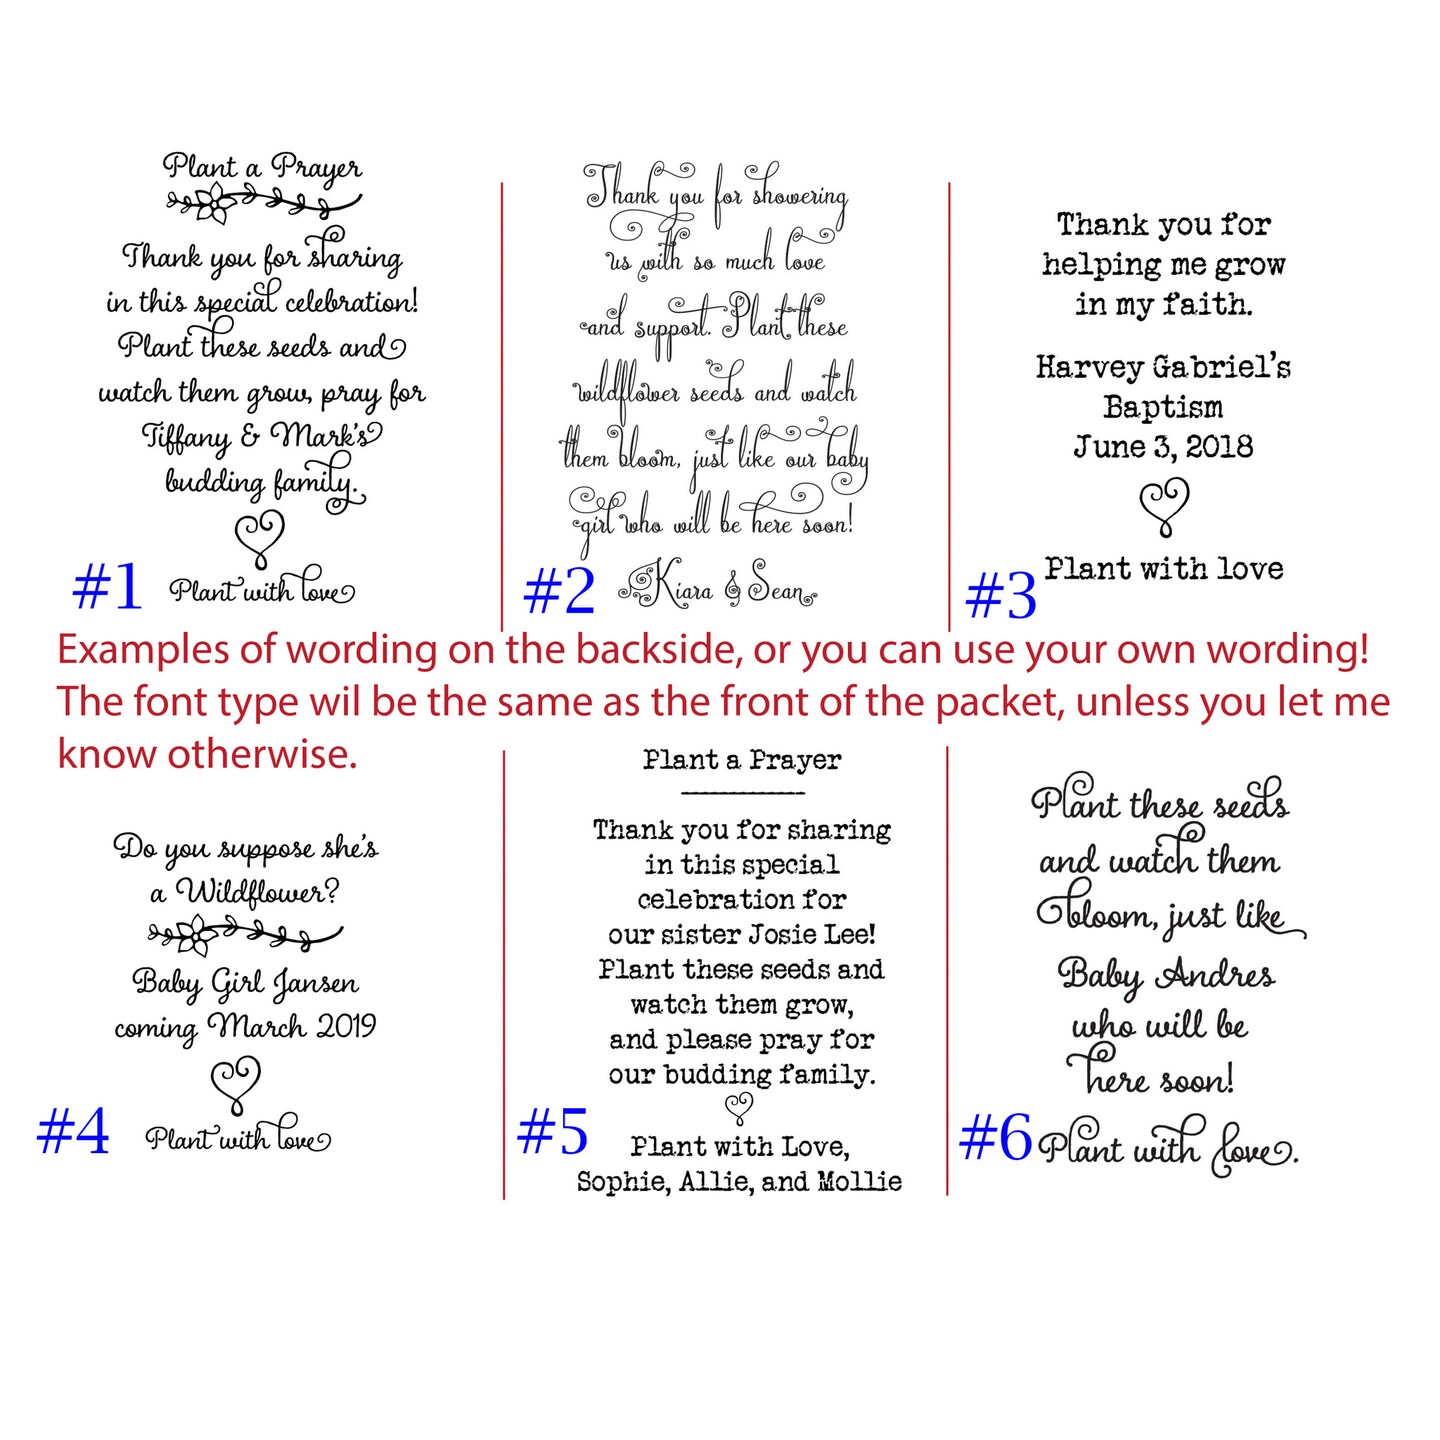 Plant a Prayer
Thank you for sharing
in this special celebration!
Plant these seeds and
watch them grow, pray for
Tiffany & Mark's
budding family.
#1
Plant with love
Thank you for showering
us with so much love
and support. Plant these
wildflower seeds and watch
them bloom, just like our baby
girl who will be here soon!
#2
Kiara & Sean
Thank you for
helping me grow
in my faith.
Harvey Gabriel's
Baptism
June 3, 2018
#3
Plant with love
Examples of wording on the backside, or you can use your own wording!
The font type wil be the same as the front of the packet, unless you let me
know otherwise.
Do you suppose she's
a Wildflower?
Baby Girl Jansen
coming March 2019
#4
Plant with love
Plant a Prayer
Thank you for sharing
in this special
celebration for
our sister Josie Lee!
Plant these seeds and
watch them grow,
and please pray for
our budding family.
#5
Plant with Love,
Sophie, Allie, and Mollie
Plant these seeds
and watch them
bloom, just like
Baby Andres
who will be
here soon!
#6
Plant with love.